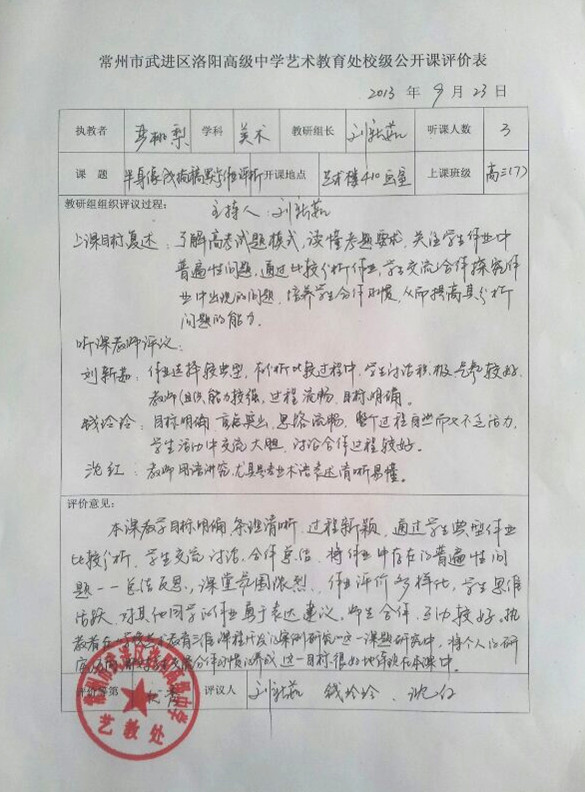 常州市武进区洛阳高级中学艺术教育处校级公开课评价表
2013 年 9 月 23 日
执教者 彭桃梨 学科 美术 教研组长 刘新茹 听课人数 3
课 题 半身像 评析 开课地点 艺术楼410画室 上课班级 高三(7)
教研组组织评议过程: 主持人:刘新茹
上课目标复述:了解高考试题模式,读懂考题要求,关注学生作业中
普遍性问题,通过比较分析作业,学生交流、合作探究作
业中出现的问题,培养学生合作习惯,从而提高其分析
问题的能力.
听课老师评议:
刘新茹:作业选择较典型,在分析比较过程中,学生讨论积极,气氛较好.
教师组织能力较强,过程流畅,目标明确。
钱玲玲:目标明确,重点突出,思路流畅,整个过程自然而又不乏活力,
学生活动中交流大胆,讨论合作过程较好。
沈红:教师用语讲究,尤其是专业术语表达清晰易懂。
评价意见:
本课教学目标明确,条理清晰,过程新颖,通过学生典型作业
比较分析,学生交流、讨论、合作总结,将作业中存在的普遍性问
题一一总结反思,课堂氛围浓烈,作业评价多样化,学生思维
活跃,对其他同学的作业勇于表达建议,师生合作、互动较好。执
教者在 教育 课程开发的案例研究》这一课题研究中,将个人的研
究 合作习惯的养成这一目标很好地体现在本课中。
评价等第 优秀 评议人 刘新茹 钱玲玲、沈红
常州市武进区洛阳高级中学
艺教处